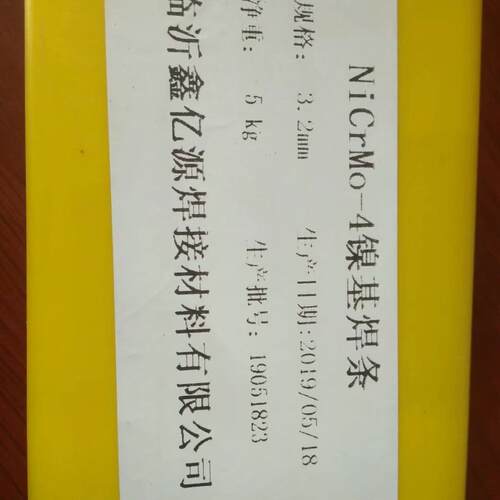 NiCrMo-4镍基焊条
规格: 3.2mm 生产日期:2019/05/18
净重: 5 kg 生产批号: 19051823
临沂鑫亿源焊接材料有限公司